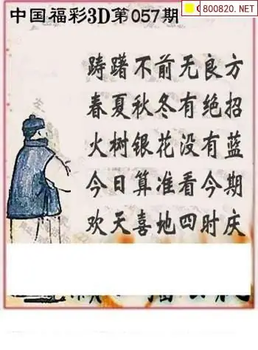 800820.NET
中国福彩3D第057期
踌躇不前无良方
春夏秋冬有绝招
火树银花没有蓝
今日算准看今期
欢天喜地四时庆